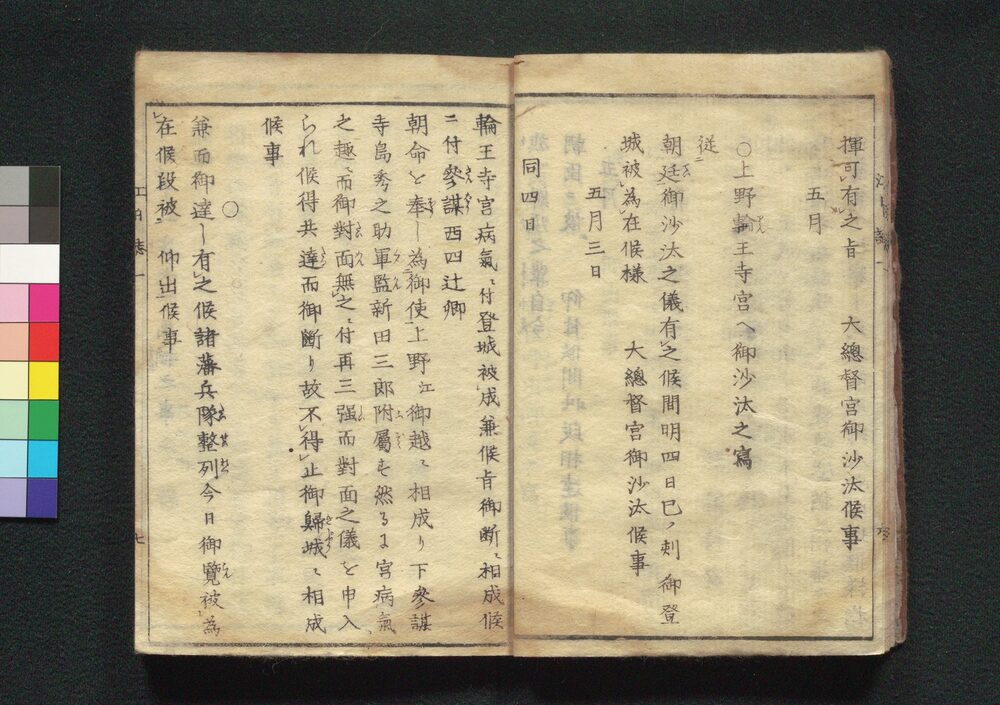 揮可有之旨　大總督宮御沙汰候事
五月
○上野輪王寺宮へ御沙汰之寫
従ニ
朝廷御沙汰之儀有之候間明四日巳ノ刺　御登
城被為在候様　大總督宮御沙汰候事
五月三日
同四日
輪王寺宮病氣ニ付登城被成兼候旨御断ニ相成候
ニ付參謀西四辻卿
朝命を奉し為御使上野江御越ニ相成り下參謀
寺島秀之助軍監新田三郎附屬す然るよ宮病氣
之趣ニ而御對面無之ニ付再三强而對面之儀を申入
られ候得共達而御断り故不得止御歸城ニ相成
候事
○
兼而御達し有之候諸藩兵隊整列今日御覽被為
在候段被　仰出候事
江日誌一
七